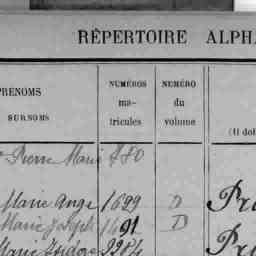 RÉPERTOIRE ALPH
PRENOMS
SURNOMS
NUMÉROS
ma-
tricules
NUMÉRO
du
volume
(Il doi
Pierre Marie 780
Marie Ange 1699 D Pr
Marie Joseph 1691 D
Marie Isidore 2284 Pr